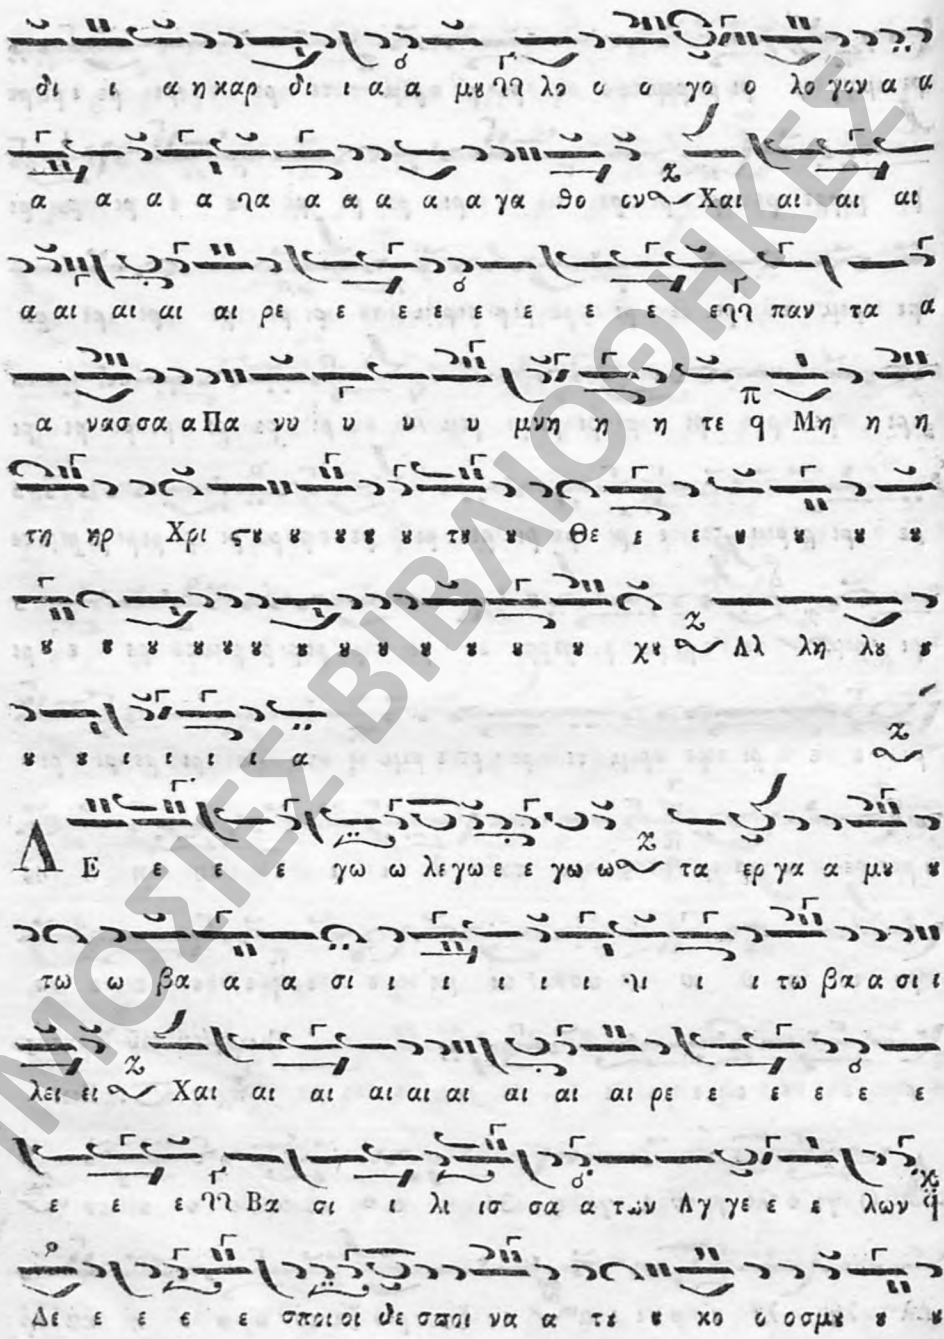 δι ι α η καρ δι ι α α μȣ λο ο ο γο ο λο γον α α
α α α α γα α α α α α γα θο ον Χαι αι αι αι
α αι αι αι αι ρε ε ε ε ε ε ε ε ε παν τα α
α νασσα α Πα νυ υ υ υ μνη η η τε Μη η η
τη ηρ Χρι ϛȣ ȣ ȣ ȣ ȣ ȣ τȣ ȣ Θε ε ε ȣ ȣ ȣ ȣ
ȣ ȣ ȣ ȣ ȣ ȣ ȣ ȣ ȣ ȣ ȣ ȣ ȣ ȣ χȣ Αλ λη λȣ ȣ
ȣ ȣ ι ι ι ι α
Λ Ε ε ε ε γω ω λε γω ε ε γω ω τα ερ γα α μȣ ȣ
τω ω βα α α σι ι ι ι ι ι ι ι τω βα α σι ι
λει ει Χαι αι αι αι αι αι αι αι αι ρε ε ε ε ε ε
ε ε ε Βα σι ι λι ισ σα α των Αγ γε ε ε λων
Δε ε ε ε ε σποι οι δε σποι να α τȣ ȣ κο ο οσμȣ ȣ ȣ
ΗΜΟΣΙΕΣ ΒΙΒΛΙΟΘΗΚΕΣ